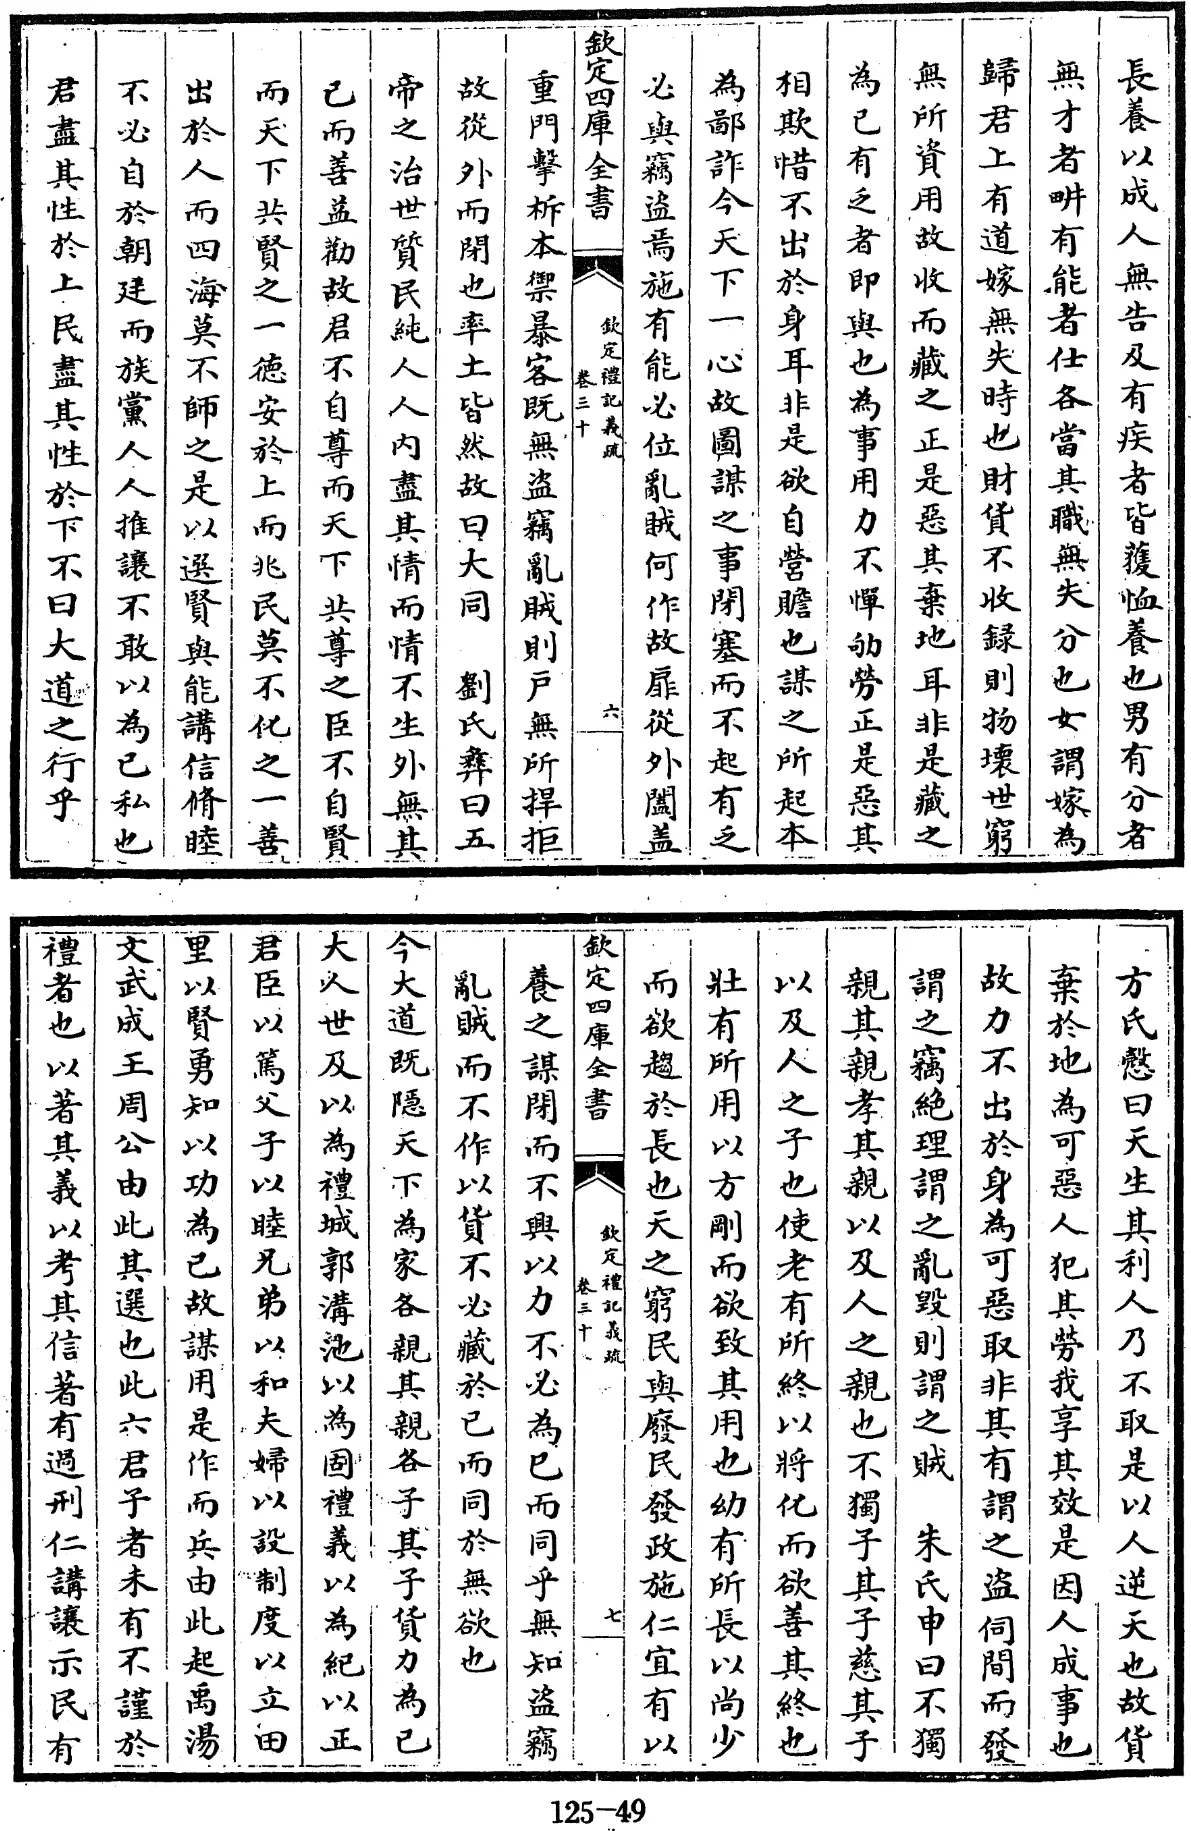 長養以成人無告及有疾者皆獲恤養也男有分者
無才者畊有能者仕各當其職無失分也女謂嫁為
歸君上有道嫁無失時也財貨不收録則物壞世窮
無所資用故收而藏之正是惡其棄地耳非是藏之
為已有乏者即與也為事用力不憚劬勞正是惡其
相欺惜不出於身耳非是欲自營贍也謀之所起本
為鄙詐今天下一心故圖謀之事閉塞而不起有乏
必與竊盜焉施有能必位亂賊何作故扉從外闔盖
欽定四庫全書
欽定禮記義疏
卷三十
六
重門擊柝本禦暴客既無盜竊亂賊則戸無所捍拒
故從外而閉也率土皆然故曰大同 劉氏彝曰五
帝之治世質民純人人内盡其情而情不生外無其
已而善益勸故君不自尊而天下共尊之臣不自賢
而天下共賢之一德安於上而兆民莫不化之一善
出於人而四海莫不師之是以選賢與能講信脩睦
不必自於朝廷而族黨人人推讓不敢以為已私也
君盡其性於上民盡其性於下不曰大道之行乎
方氏慤曰天生其利人乃不取是以人逆天也故貨
棄於地為可惡人犯其勞我享其效是因人成事也
故力不出於身為可惡取非其有謂之盜伺間而發
謂之竊絶理謂之亂毀則謂之賊 朱氏申曰不獨
親其親孝其親以及人之親也不獨子其子慈其子
以及人之子也使老有所終以將化而欲善其終也
壯有所用以方剛而欲致其用也幼有所長以尚少
而欲趨於長也天之窮民與廢民發政施仁宜有以
欽定四庫全書
欽定禮記義疏
卷三十
七
養之謀閉而不興以力不必為已而同乎無知盜竊
亂賊而不作以貨不必藏於已而同於無欲也
今大道既隱天下為家各親其親各子其子貨力為已
大人世及以為禮城郭溝池以為固禮義以為紀以正
君臣以篤父子以睦兄弟以和夫婦以設制度以立田
里以賢勇知以功為已故謀用是作而兵由此起禹湯
文武成王周公由此其選也此六君子者未有不謹於
禮者也以著其義以考其信著有過刑仁講讓示民有
125-49